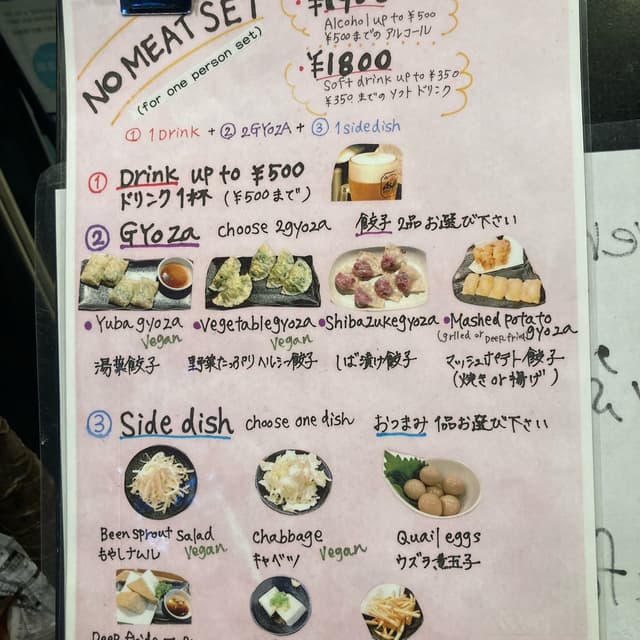 NO MEAT SET
(for one person set)
Alcohol up to ¥500
¥500までの アルコール
¥1800
Soft drink up to ¥350
¥350 までの ソフトドリンク
① 1 Drink + ② 2GYOZA + ③ 1 sidedish
① Drink up to ¥500
ドリンク 1杯 (¥500まで)
② GYoza choose 2gyoza 餃子 2品お選び下さい
•Yuba gyoza •Vegetable gyoza •Shibazuke gyoza •Mashed potato
Vegan Vegan (grilled or Deep fried) gyoza
湯葉餃子 野菜たっぷりヘルシー餃子 しば漬け餃子 マッシュポテト餃子
(焼き or 揚げ)
③ Side dish choose one dish おつまみ 1品お選び下さい
Been sprout salad Chabbage Quail eggs
もやしナムル Vegan キャベツ Vegan ウズラ煮玉子